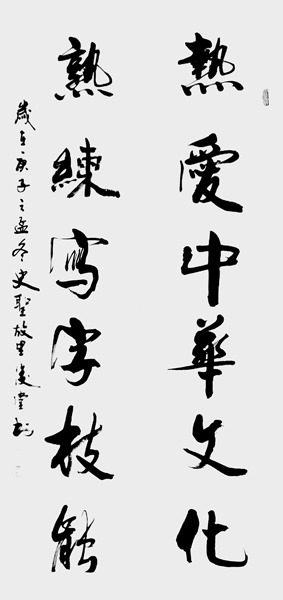 熱愛中華文化
熟練寫字技能
歲在庚子之孟冬史聖故里